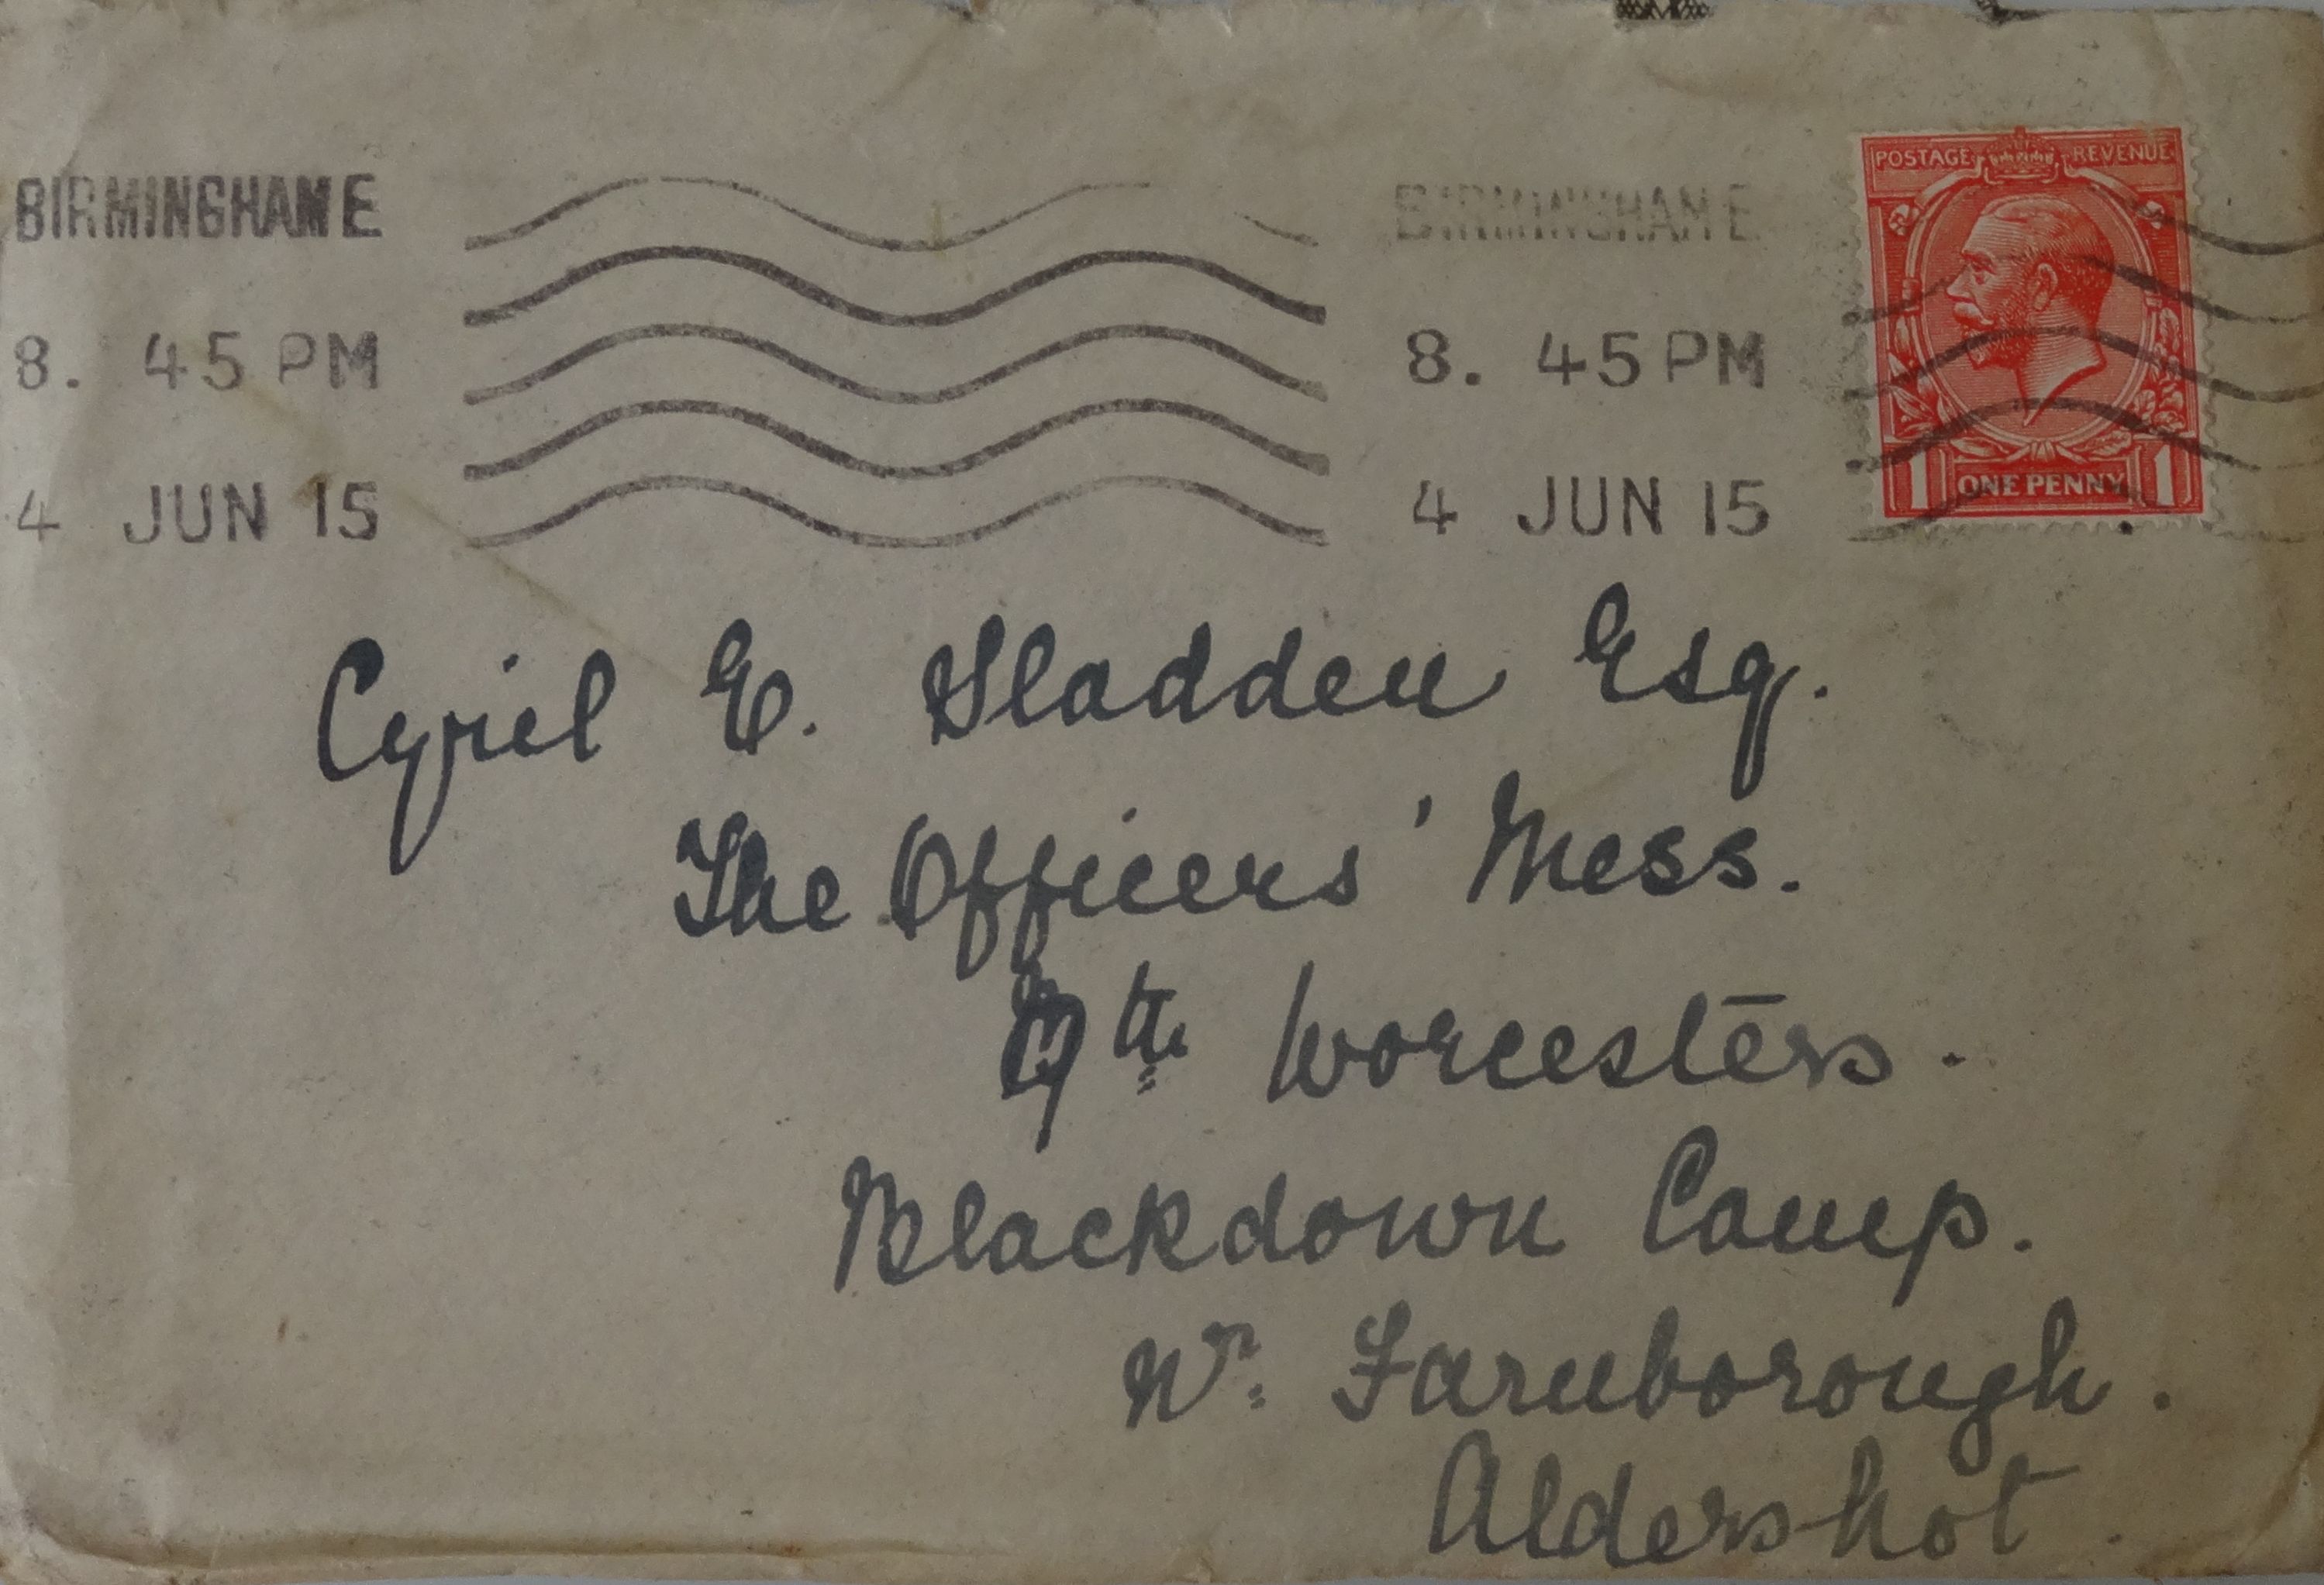 POSTAGE REVENUE
BIRMINGHAM E BIRMINGHAM E
8. 45 PM 8. 45 PM
4 JUN 15 4 JUN 15
1 ONE PENNY 1
Cyril E. Sladden Esq.
The Officers' Mess.
9th Worcesters.
Blackdown Camp.
Nr. Farnborough.
Aldershot.